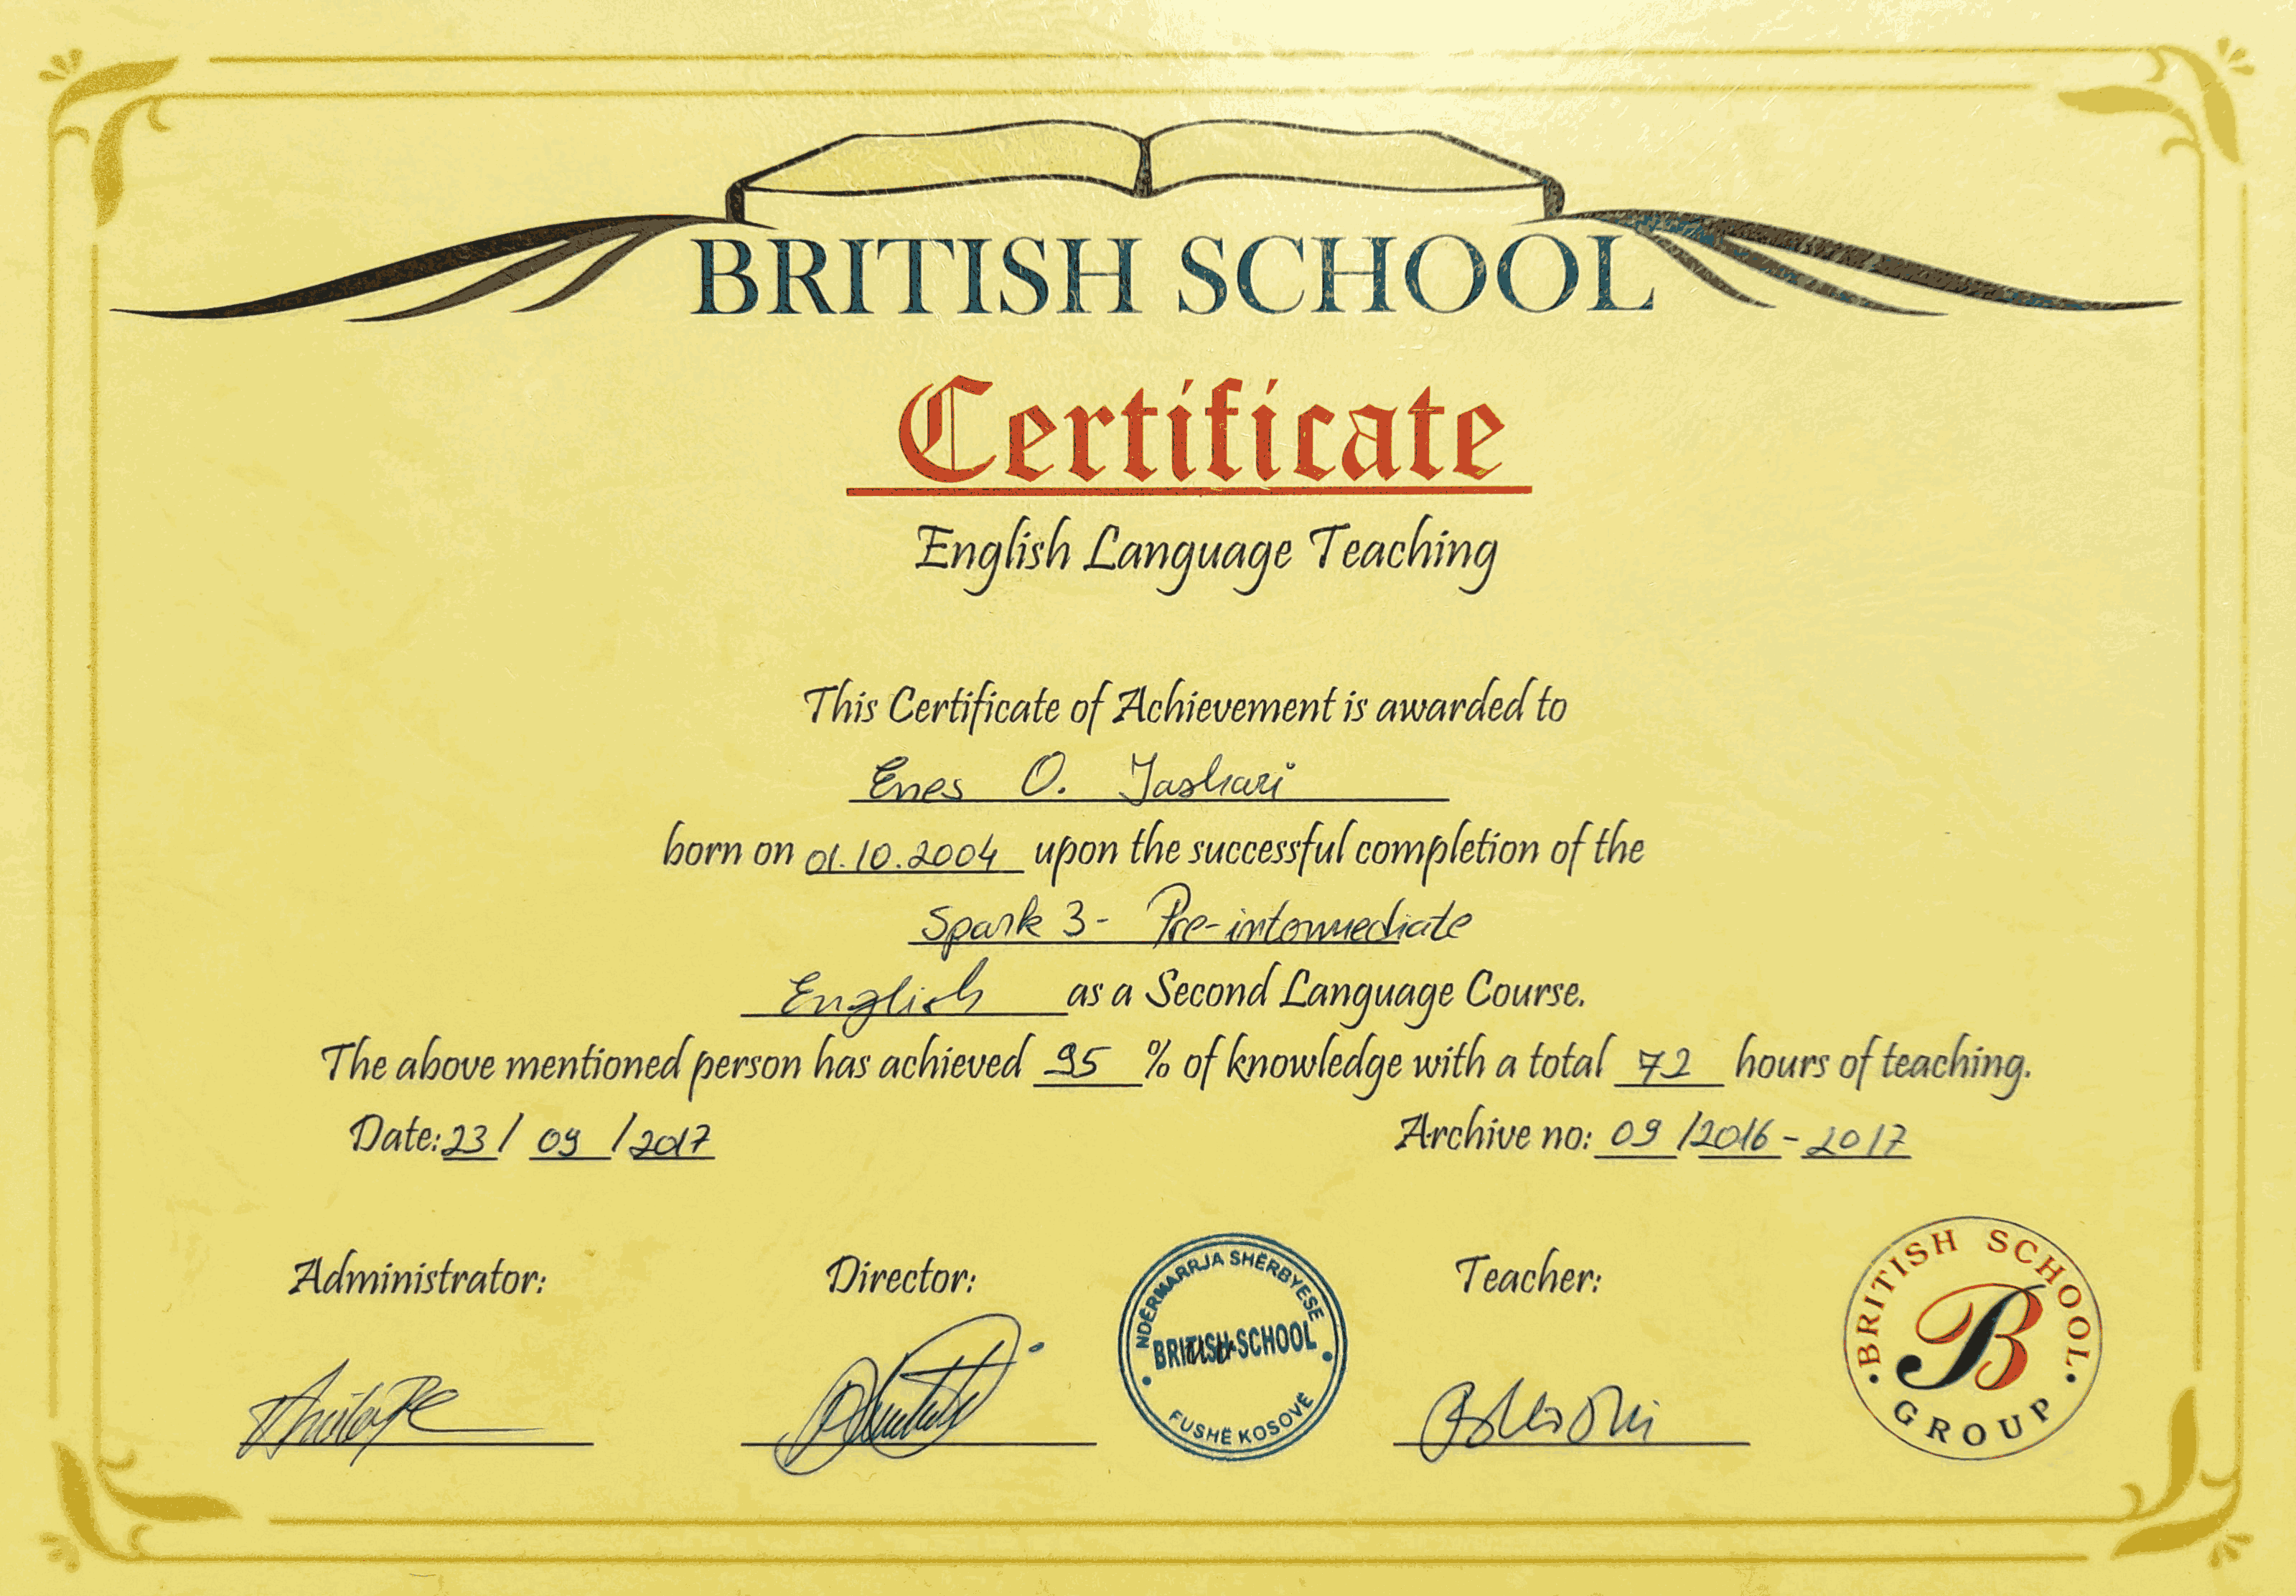 BRITISH SCHOOL
Certificate
English Language Teaching
This Certificate of Achievement is awarded to
Enes O. Jashari
born on 01.10.2004 upon the successful completion of the
Spark 3 - Pre-intermediate
English as a Second Language Course.
The above mentioned person has achieved 95 % of knowledge with a total 72 hours of teaching.
Date: 23 / 09 / 2017
Archive no: 09 / 2016 - 2017
Administrator:
Director:
Teacher:
NDËRMARRJA SHËRBYESE
BRITISH SCHOOL
FUSHË KOSOVË
BRITISH SCHOOL
B
GROUP